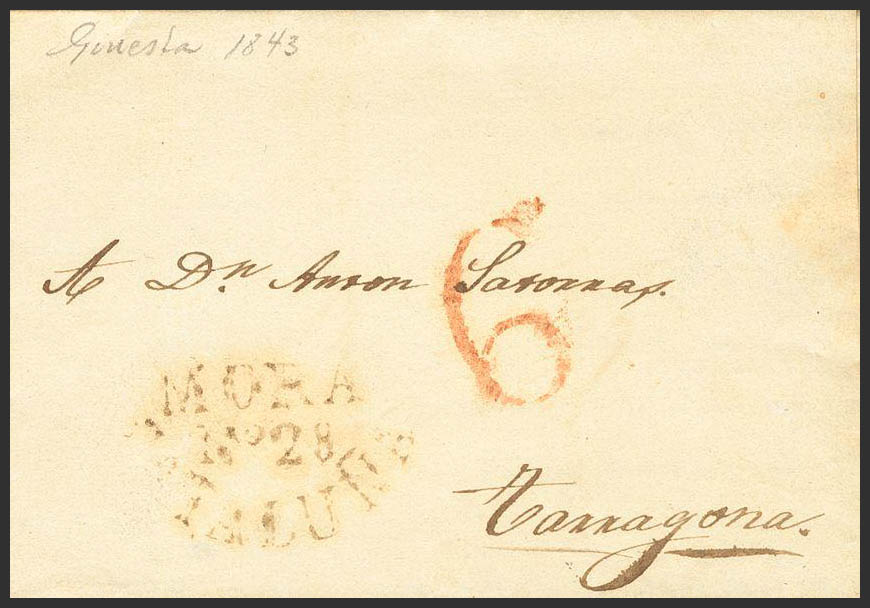 Ginesta 1843
6
A Dn. Anton Satorras.
MORA
No 28
CATALUÑA
Tarragona.